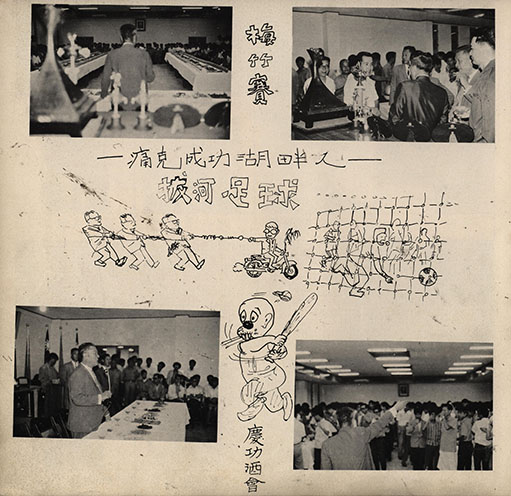 梅竹賽
—痛克成功湖畔人—
拔河足球
慶功酒會